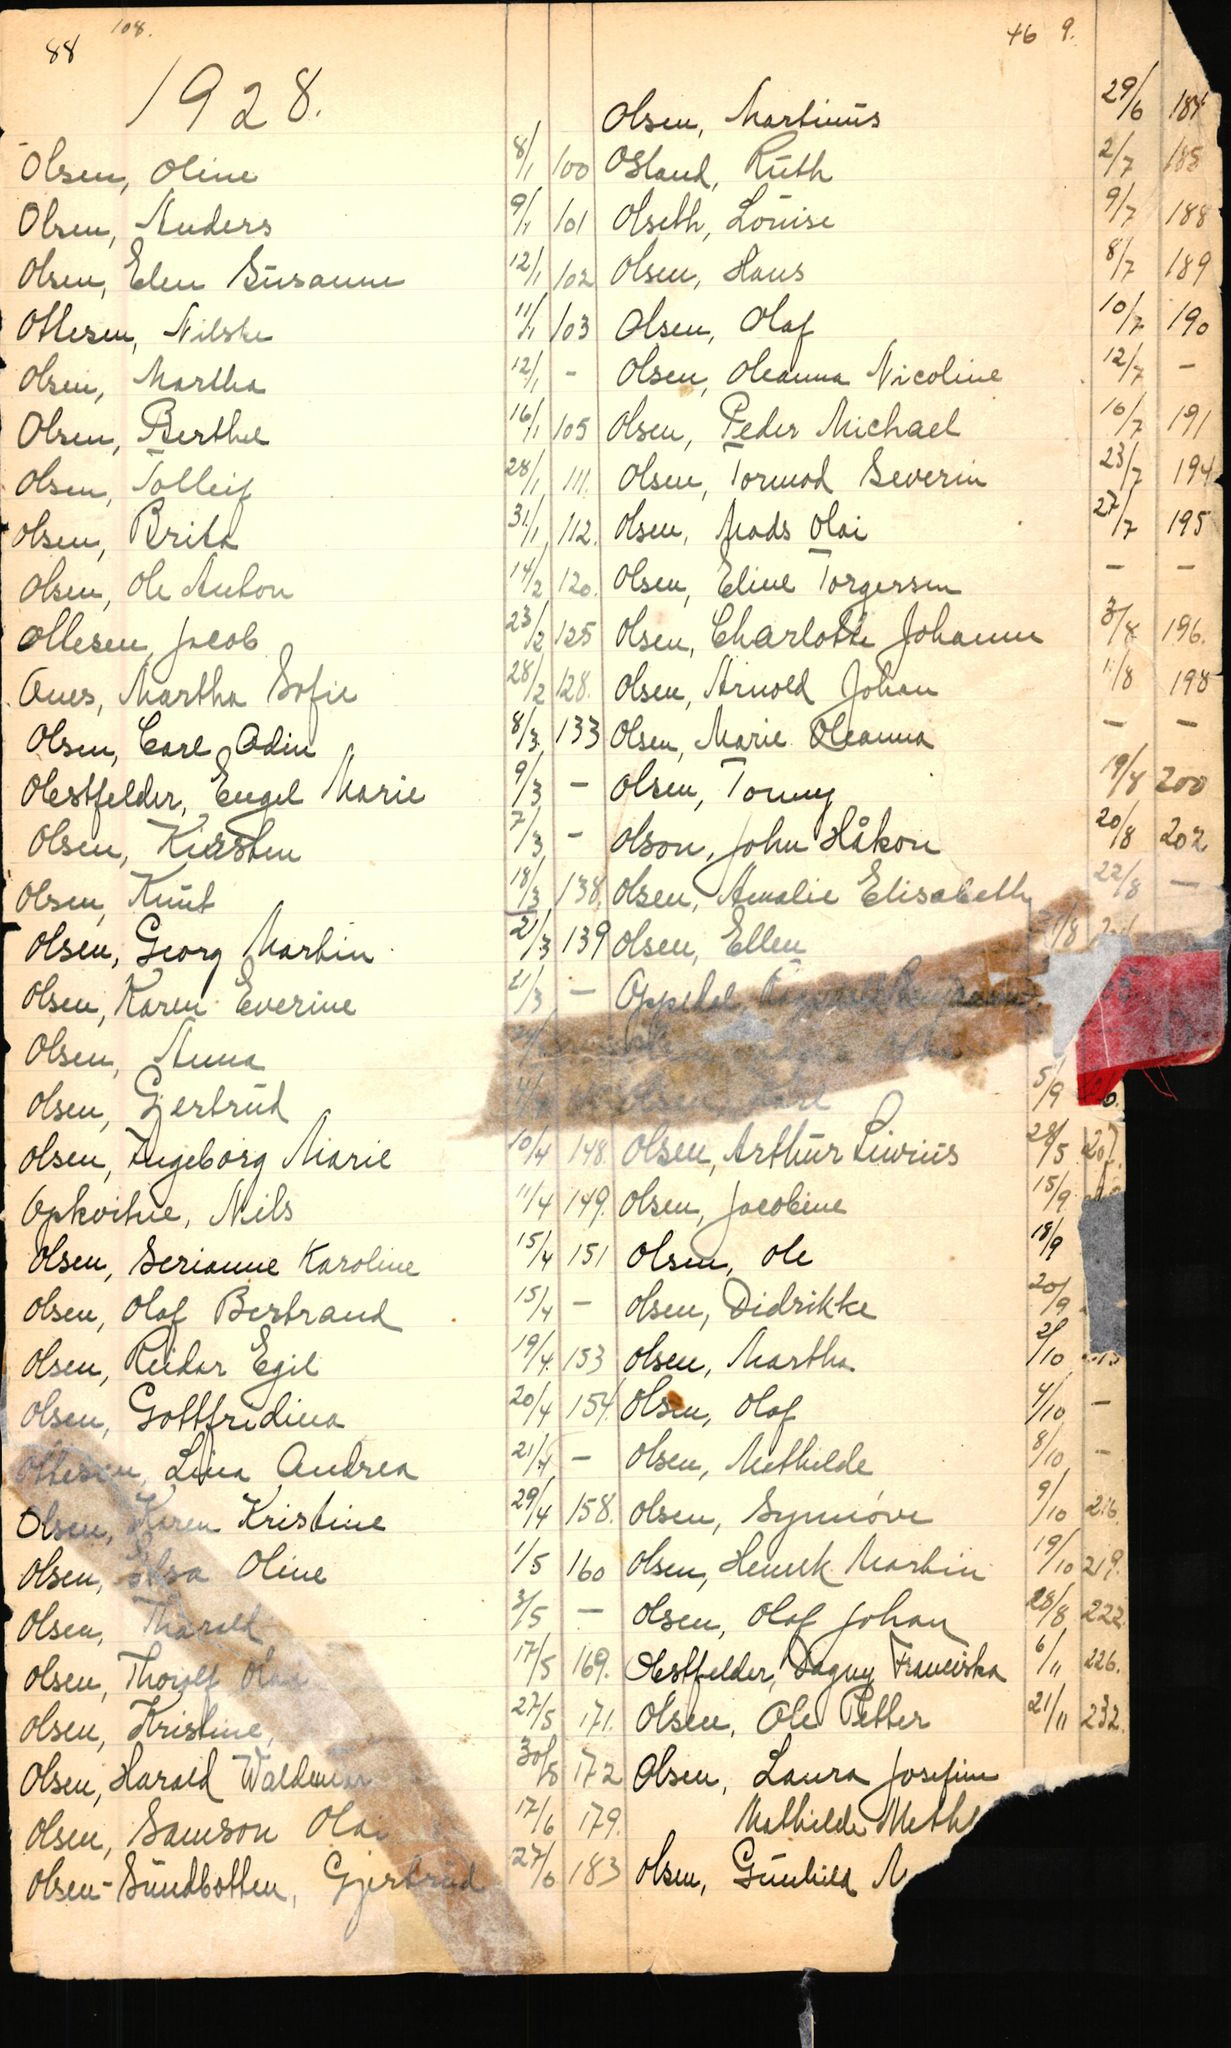 88 108.
46 9.
1928.
Olsen, Oline 8/1 100
Olsen, Anders 9/1 101
Olsen, Elen Susanne 12/1 102
Ottesen, Nilske 11/1 103
Olsen, Martha 12/1 -
Olsen, Berthe 16/1 105
Olsen, Tolleif 28/1 111.
Olsen, Brita 31/1 112.
Olsen, Ole Anton 14/2 120.
Ottesen, Jacob 23/2 125
Aues, Martha Sofie 28/2 128.
Olsen, Carl Odin 8/3 133
Oestfelder, Engel Marie 9/3 -
Olsen, Kirsten 7/3 -
Olsen, Knut 18/3 138.
Olsen, Georg Martin 21/3 139
Olsen, Karen Everine 21/3 -
Olsen, Anna
Olsen, Gjertrud
Olsen, Ingeborg Marie 10/4 148.
Opkvitne, Nils 11/4 149.
Olsen, Serianne Karoline 15/4 151
Olsen, Olaf Bertrand 15/4 -
Olsen, Reidar Egil 19/4 153
Olsen, Gottfridina 20/4 154.
Ottesen, Lina Andrea 21/4 -
Olsen, Karen Kristine 29/4 158.
Olsen, Elsa Oline 1/5 160
Olsen, Tharald 3/5 -
Olsen, Thorolf 17/5 169.
Olsen, Kristine, 27/5 171.
Olsen, Harald Waldemar 30/5 172
Olsen, Samson Olai 17/6 179.
Olsen-Sundbotten, Gjertrud 27/6 183
Olsen, Martinus 29/6 184
Osland, Ruth 2/7 185
Olseth, Louise 9/7 188
Olsen, Hans 8/7 189
Olsen, Olaf 10/7 190
Olsen, Oleanna Nicoline 12/7 -
Olsen, Peder Michael 16/7 191
Olsen, Tormod Severin 23/7 194
Olsen, Mads Olai 27/7 195
Olsen, Eline Torgersen - -
Olsen, Charlotte Johanne 3/8 196.
Olsen, Arnold Johan 11/8 198
Olsen, Marie Oleanna - -
Olsen, Tonny 19/8 200
Olson, John Håkon 20/8 202
Olsen, Amalie Elisabeth 22/8 -
Olsen, Ellen
Oppedal,
Olsen, 5/9
Olsen, Arthur Livius 28/5 207.
Olsen, Jacobine 15/9
Olsen, Ole 18/9
Olsen, Didrikke 20/9
Olsen, Martha 2/10
Olsen, Olaf 4/10 -
Olsen, Methilde 8/10 -
Olsen, Synnöve 9/10 216.
Olsen, Henrik Martin 19/10 219.
Olsen, Olaf Johan 28/8 222.
Oestfelder, Dagny Franciska 6/11 226.
Olsen, Ole Petter 21/11 232.
Olsen, Laura Josefine
Mathilde Meth
Olsen, Gunhild